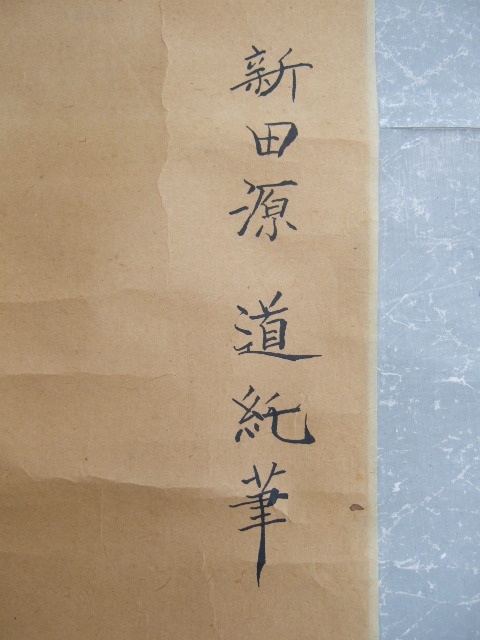 新田源 道純筆